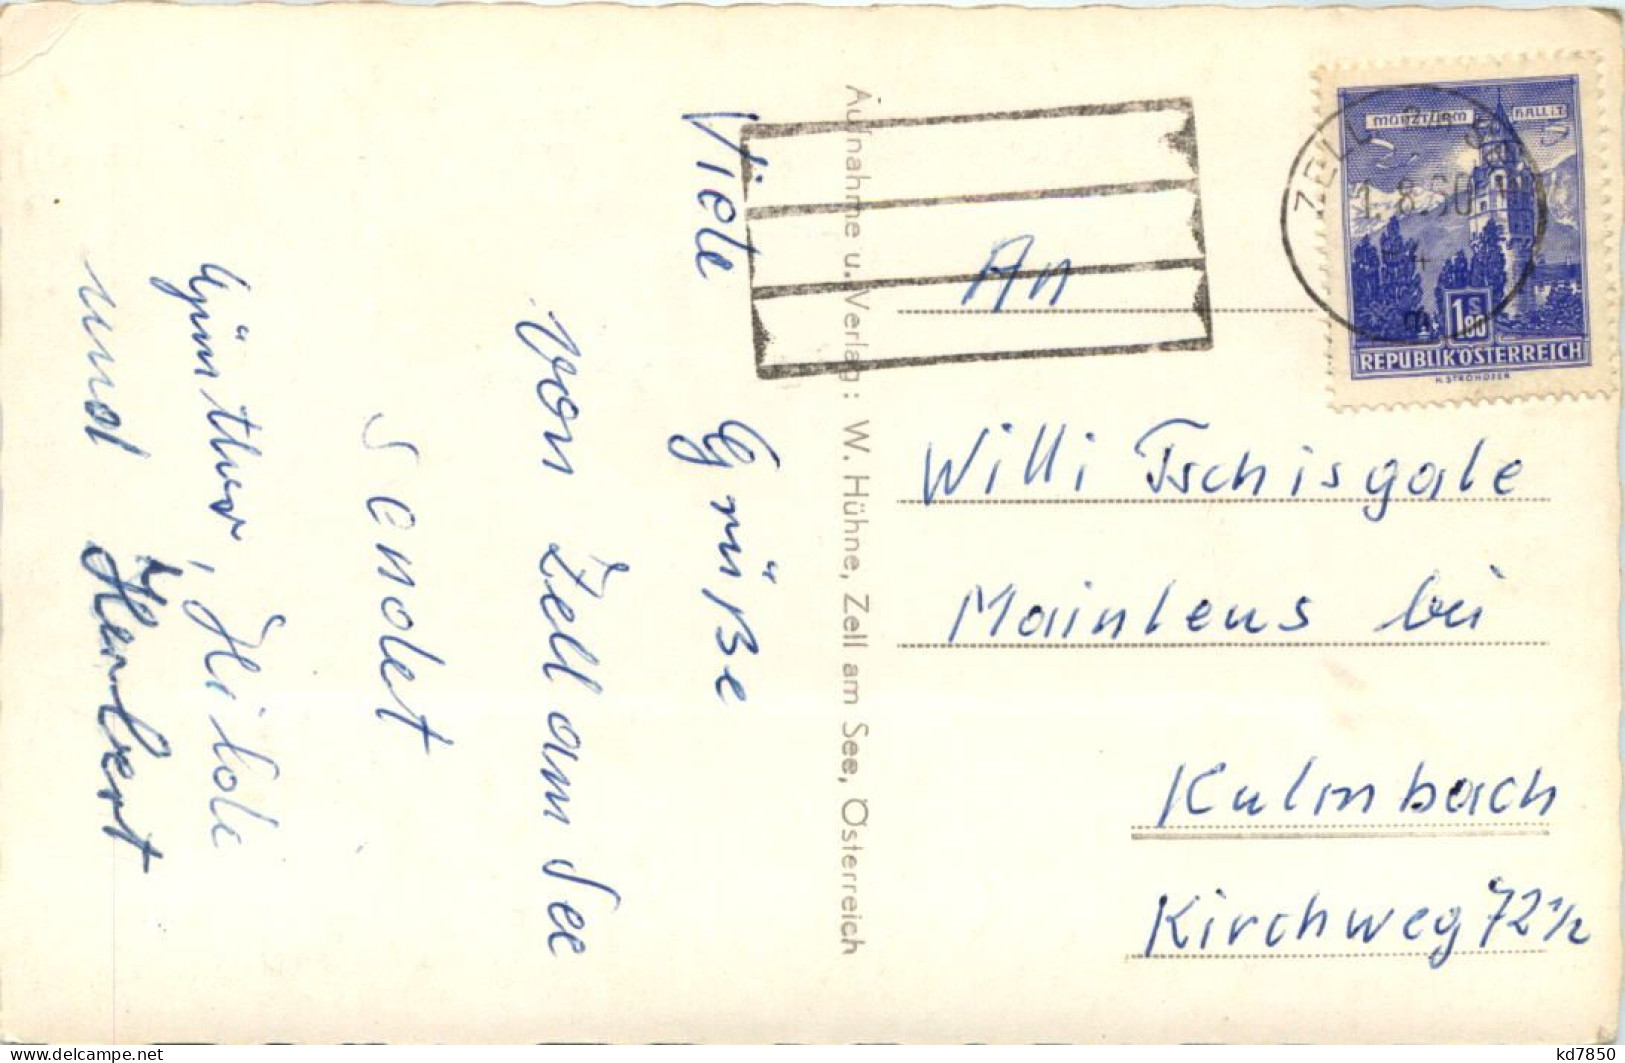 Viele Grüße
von Zell am See
sendet
Günther, Heide
und Herbert
Aufnahme u. Verlag: W. Hühne, Zell am See, Österreich
MÜNZTURM HALL i.T.
1 S 80
REPUBLIK ÖSTERREICH
H. STROHOFER
ZELL am SEE
1.8.60
An
Willi Tschisgale
Mainleus bei
Kulmbach
Kirchweg 72 1/2
kd7850